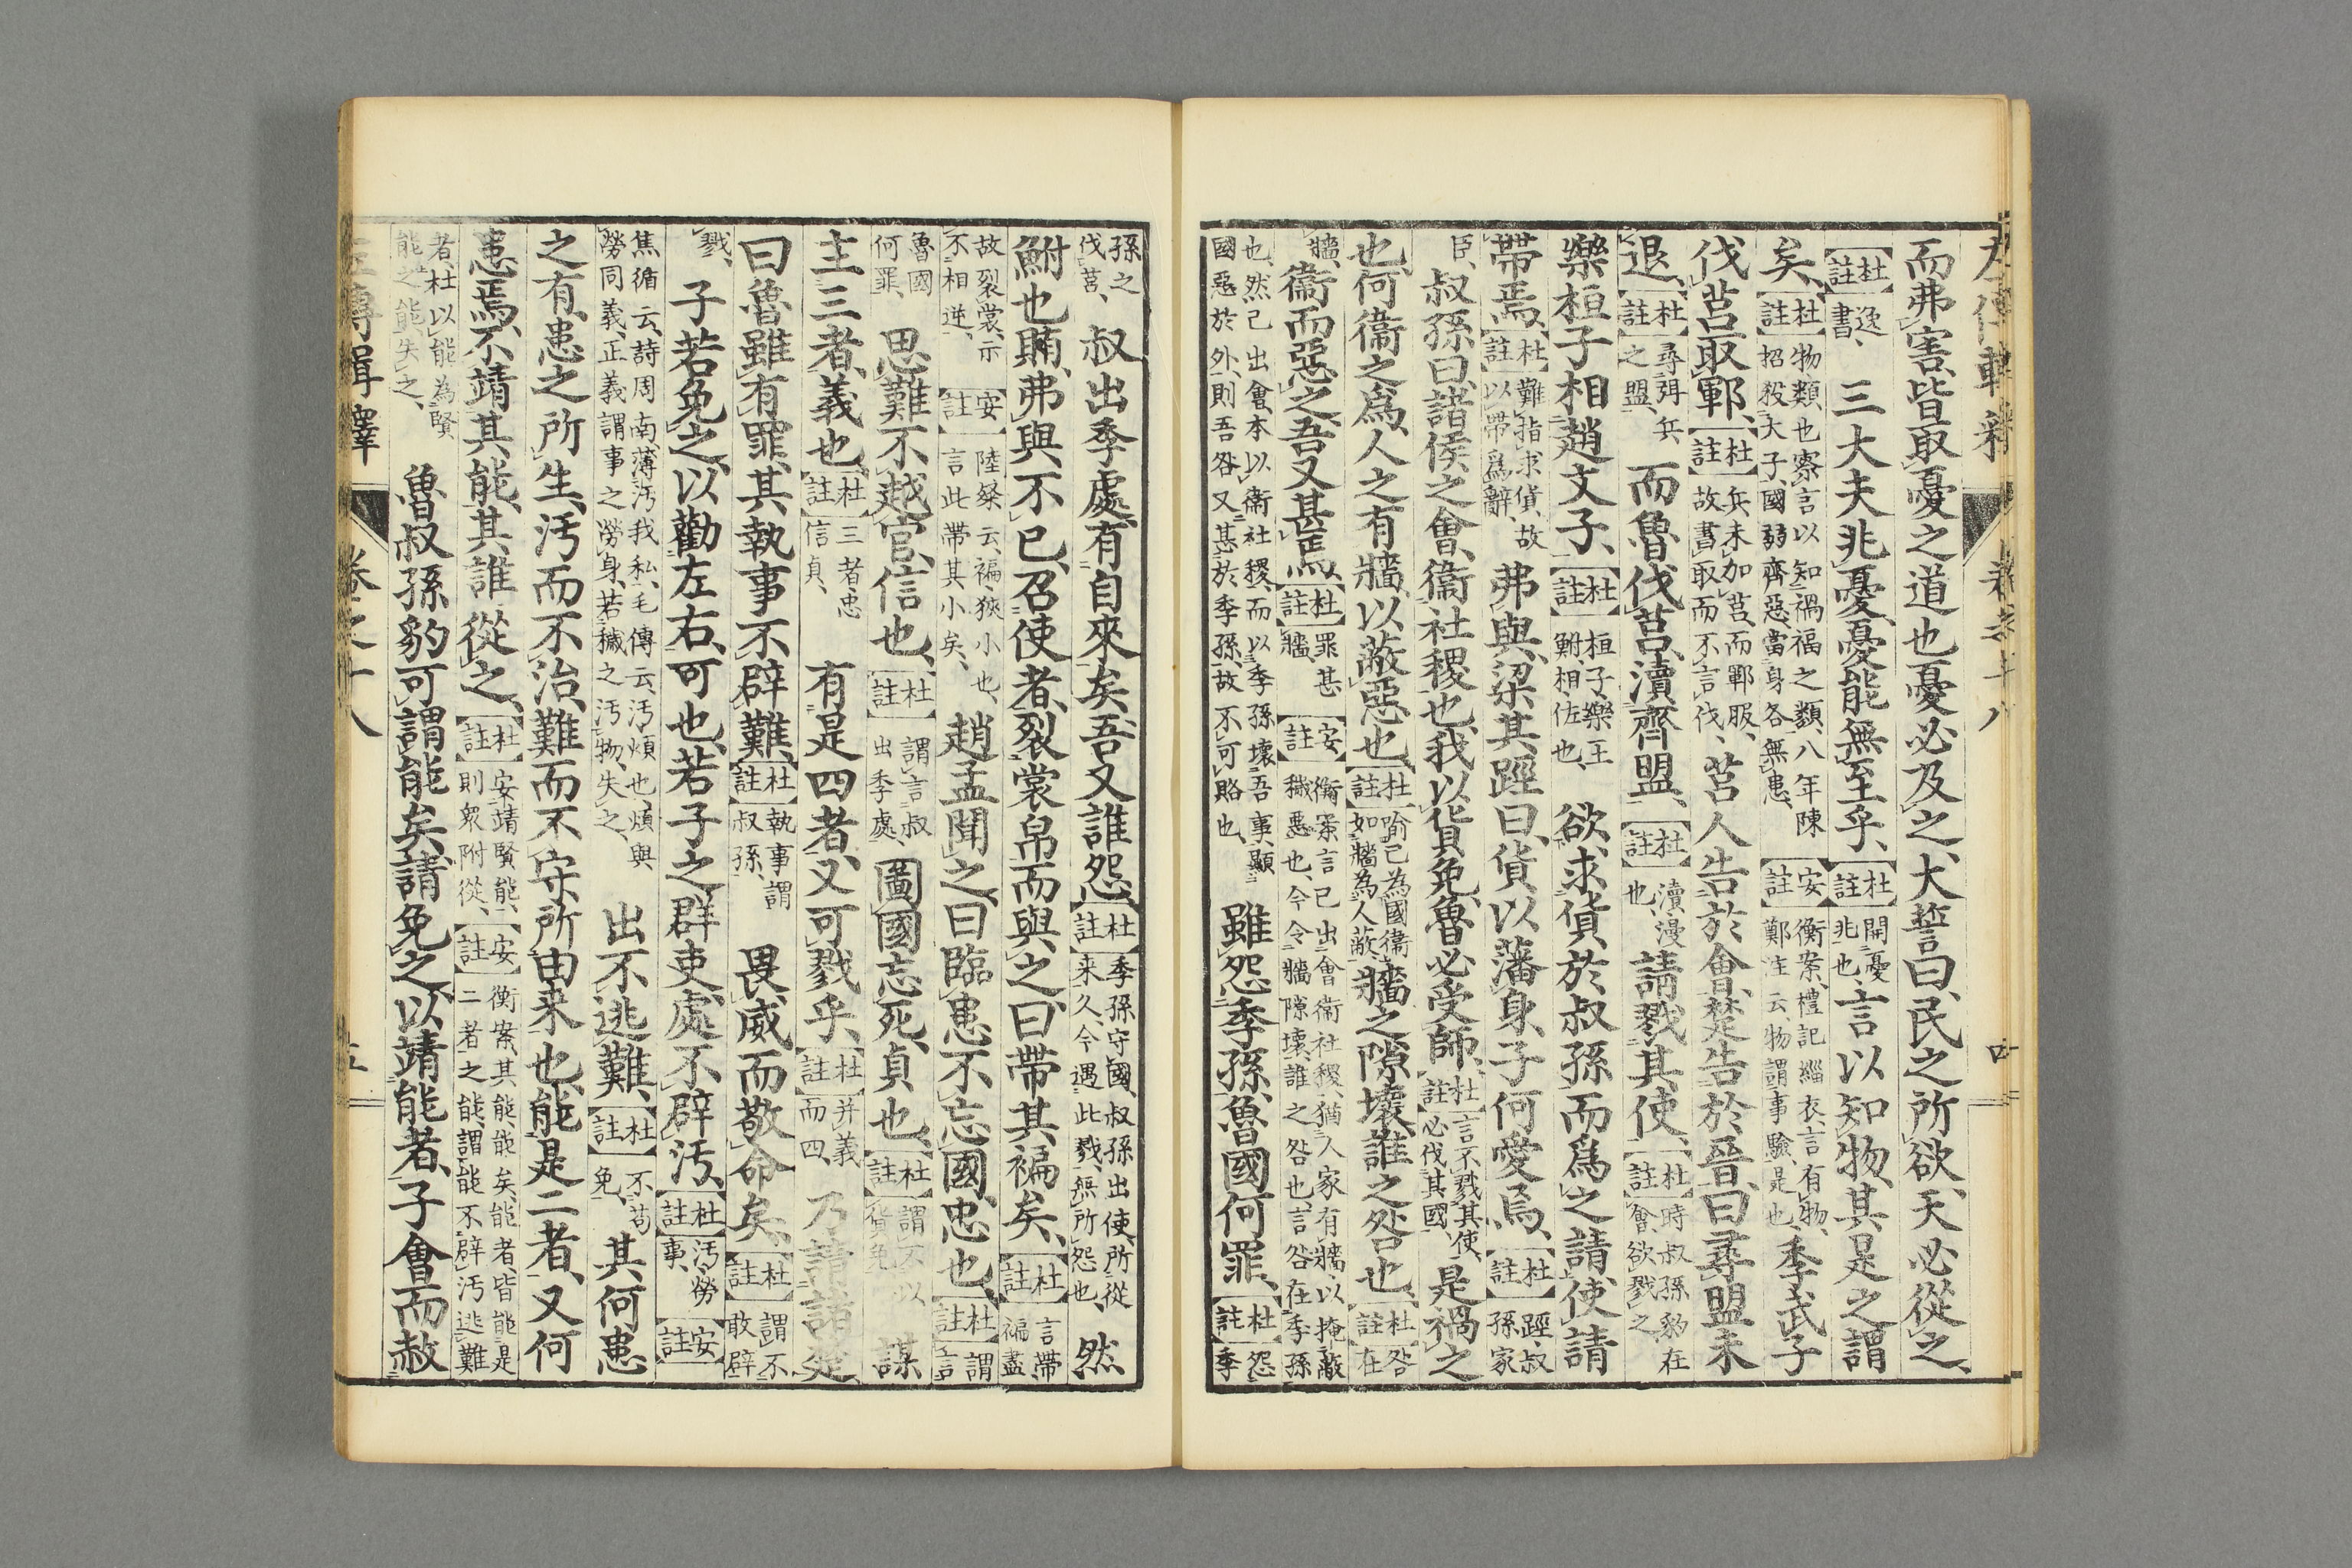 而弗害、皆取憂之道也、憂必及之、大誓曰、民之所欲、天必從之、
【杜註】逸書、三大夫兆憂、憂能無至乎、【杜註】開憂兆也、言以知物、其是之謂
矣、【杜註】物、類也、察言以知禍福之類、八年陳招殺大子、國弱齊惡、當身各無患、【安註】衡案、禮記緇衣、言有物、鄭注云、物謂事驗、是也、季武子
伐莒取鄆、【杜註】兵未加莒、而鄆服、故書取而不言伐、莒人告於會、楚告於晉、曰、尋盟未
退、【杜註】尋弭兵之盟、而魯伐莒、瀆齊盟、【杜註】瀆、漫也、請戮其使、【杜註】時叔孫豹在會、欲戮之、
樂桓子相趙文子、【杜註】桓子、樂王鮒、相、佐也、欲求貨於叔孫、而爲之請、使請
帶焉、【杜註】難指求貨、故以帶爲辭、弗與、梁其踁曰、貨以藩身、子何愛焉、【杜註】踁、叔孫家
臣、叔孫曰、諸侯之會、衞社稷也、我以貨免、魯必受師、【杜註】言不戮其使、必伐其國、是禍之
也、何衞之爲、人之有牆、以蔽惡也、【杜註】喻己為國衞、如牆為人蔽、牆之隙壞、誰之咎也、【杜註】咎在
牆、衞而惡之、吾又甚焉、【杜註】罪甚牆、【安註】衡案、言己出會衞社稷、猶人家有牆、以掩蔽穢惡也、今令牆隙壞、誰之咎也、言咎在季孫
也、然己出會、本以衞社稷、而以季孫壞吾事、顯國惡於外、則吾咎又甚於季孫、故不可賂也、雖怨季孫、魯國何罪、【杜註】怨季
孫之伐莒、叔出季處、有自來矣、吾又誰怨、【杜註】季孫守國、叔孫出使、所從来久、今遇此戮、無所怨也、然
鮒也賄、弗與、不已、召使者、裂裳帛而與之、曰、帶其褊矣、【杜註】言帶褊盡
故裂裳、示不相逆、【安註】陸粲云、褊、狹小也、言此帶其小矣、趙孟聞之曰、臨患不忘國、忠也、【杜註】謂言
魯國何罪、思難不越官、信也、【杜註】謂言叔出季處、圖國忘死、貞也、【杜註】謂不以貨免、謀
主三者、義也、【杜註】三者、忠信貞、有是四者、又可戮乎、【杜註】并義而四、乃請諸楚
曰、魯雖有罪、其執事不辟難、【杜註】執事謂叔孫、畏威而敬命矣、【杜註】謂不敢辟
戮、子若免之、以勸左右、可也、若子之群吏、處不辟汚、【杜註】汚、勞事、【安註】
焦循云、詩周南、薄汚我私、毛傳云、汚、煩也、煩與勞同義、正義謂事之勞身、若穢之汚物、失之、出不逃難、【杜註】不苟免、其何患
之有、患之所生、汚而不治、難而不守、所由来也、能是二者、又何
患焉、不靖其能、其誰從之、【杜註】安靖賢能、則衆附從、【安註】衡案、其能、能矣、能者、皆能是二者之能、謂能不辟汚逃難
者、杜以能為賢能之能、失之、魯叔孫豹可謂能矣、請免之、以靖能者、子會而赦
左傳輯釋　卷之十八